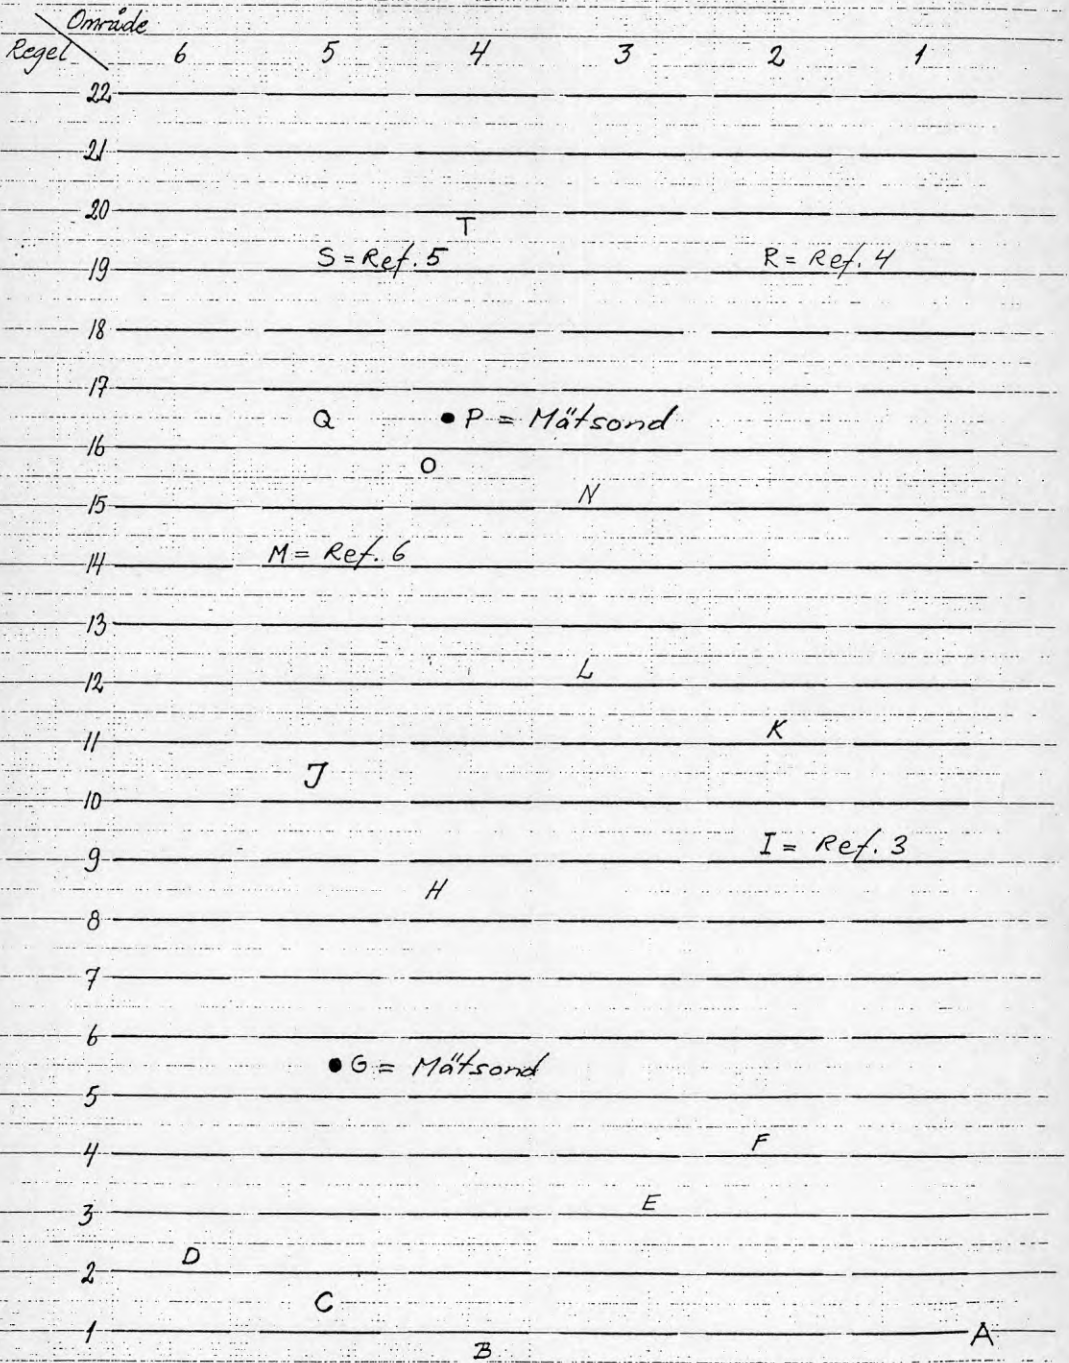 Område
Regel 6 5 4 3 2 1
22
21
20
T
S = Ref. 5 R = Ref. 4
19
18
17
Q • P = Mätsond
16
O
N
15
M = Ref. 6
14
13
L
12
K
11
J
10
I = Ref. 3
9
H
8
7
6
• G = Mätsond
5
F
4
E
3
D
2
C
1 A
B